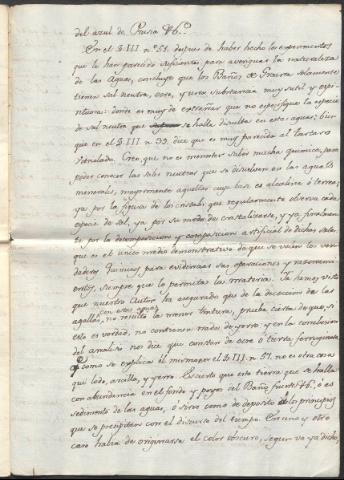 del azul de Prusia &c.
En el § III nº 51. despues de haber hecho los experimentos
que le han parecido suficientes para averiguar la naturaleza
de las aguas, concluye que los Baños de Graena solamente
tienen sal neutra, ocre, y una substancia muy sutil y espi-
rituosa: donde es muy de extrañar que no especifique la especie
de sal neutra que se halla disuelta en estas aguas; bien
que en el § III n. 55. dice que es muy parecida al tartaro
vitriolado. Creo, que no es menester saber mucha quimica, para
poder conocer las sales neutras que se disuelven en las aguas
minerales, mayormente aquellas cuya base es alcalina ó terrea;
ya por la figura de los cristales que regularmente observa cada
especie de sal, ya por su modo de cristalizarse, y ya finalmen-
te por la descomposicion y composicion artificial de dichas sales
que es el unico modo demonstrativo de que se valen los ver-
daderos Quimicos para evidenciar sus operaciones y raciocini-
os, siempre que lo permitas las materias. Ya hemos visto
que nuestro Autor ha asegurado que de la diseccion de las
agallas, con estas aguas no resulto la menor tintura, prueba cierta de que, si
ello es verdad, no contienen nada de yerro. y en la conclusion
del analisis nos dice que constan de ocre ó tierra ferruginosa
como se explica él mismo por el § III n. 57. no es otra cosa
que lodo, arcilla, y yerro. Es cierto que esta tierra que se halla
con abundancia en el fondo y poyos del Baño fuerte &c. ó es
sedimento de las aguas, ó sirve como de deposito de los principios
que se precipitaron con el discurso del tiempo. En uno y otro
caso habia de originarse el color obscuro, segun va ya dicho,